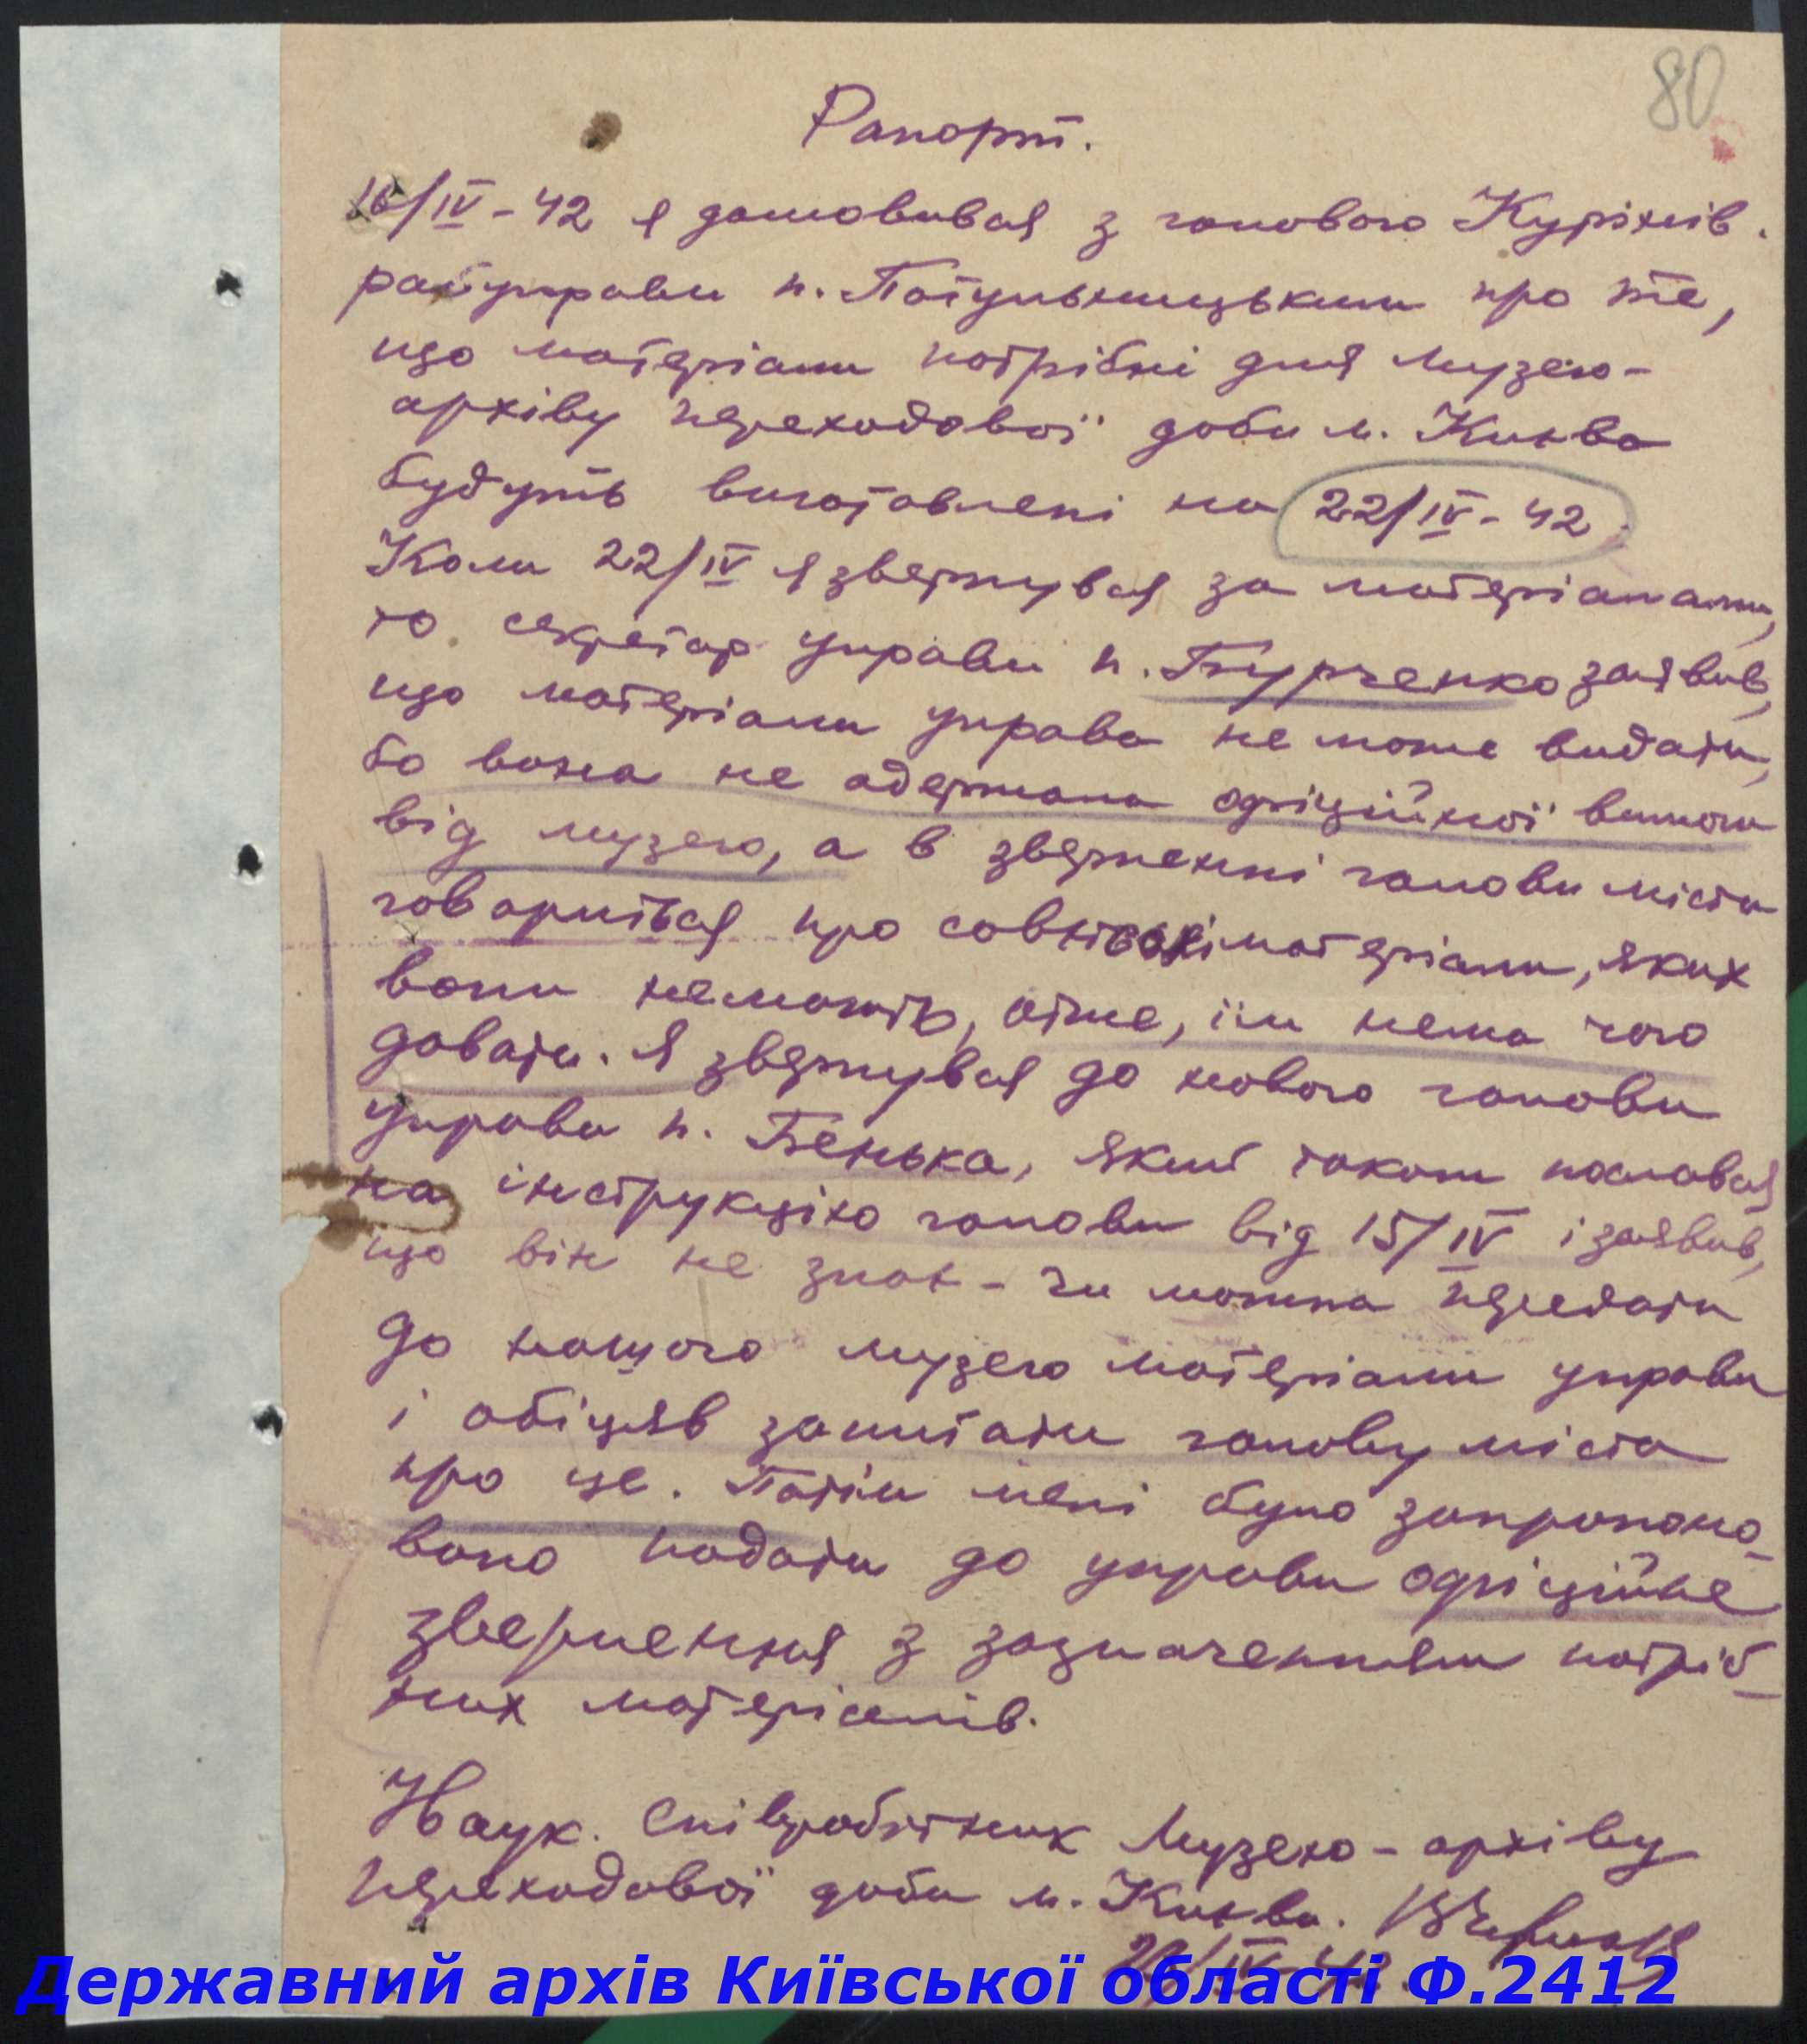 80
Рапорт.
16/IV-42 я домовився з головою Курінів.
райуправи п. Потульницьким про те,
що матеріали потрібні для Музею-
архіву переходової доби м. Києва
будуть виготовлені на 22/IV-42.
Коли 22/IV я звернувся за матеріалами,
то секретар управи п. Бурченко заявив,
що матеріали управа не може видати,
бо вона не одержала офіційної вимоги
від музею, а в зверненні голови міста
говориться про матеріали, яких
вони не мають, отже, їм нема чого
давати. Я звернувся до нового голови
управи п. Бенька, який також послався
на інструкцію голови від 15/IV і заявив,
що він не знає - чи можна передати
до нашого музею матеріали управи
і обіцяв запитати голову міста
про це. Потім мені було запропоно-
вано подати до управи офіційне
звернення з зазначенням потріб-
них матеріалів.
Наук. співробітник Музею-архіву
переходової доби м. Києва.
IV-42
Державний архів Київської області Ф.2412